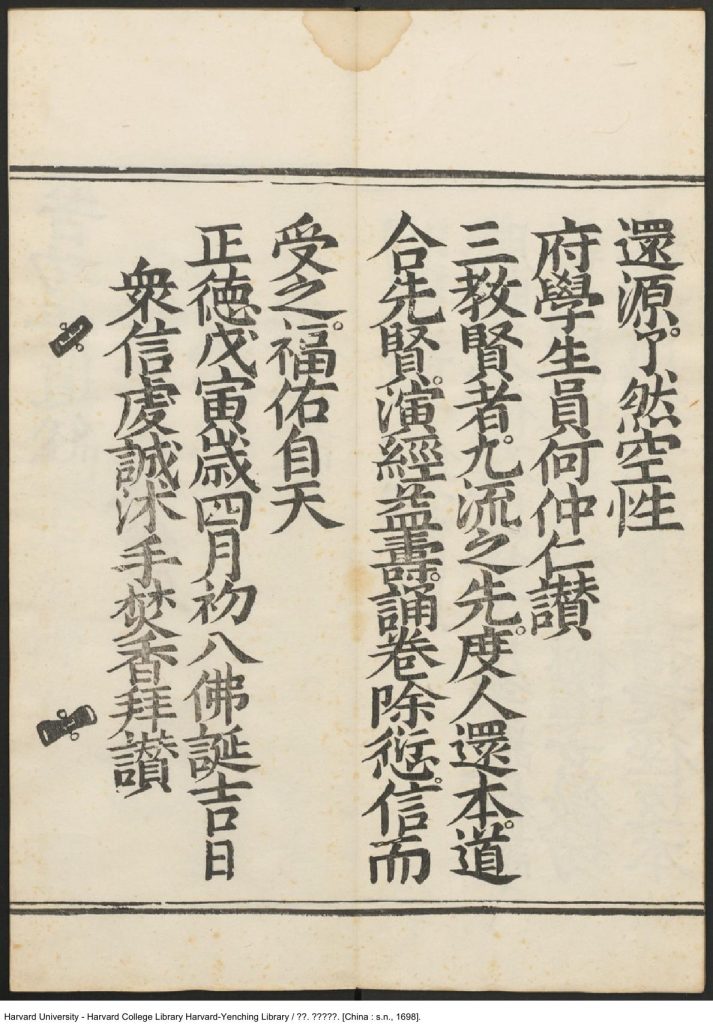 還源。了然空性
府學生員何仲仁讚
三教賢者。九流之先。度人還本。道
合先賢。演經益壽。誦卷除愆。信而
受之。福佑自天
正德戊寅歲四月初八佛誕吉日
衆信虔誠沐手焚香拜讚
Harvard University - Harvard College Library Harvard-Yenching Library / ??. ?????. [China : s.n., 1698].